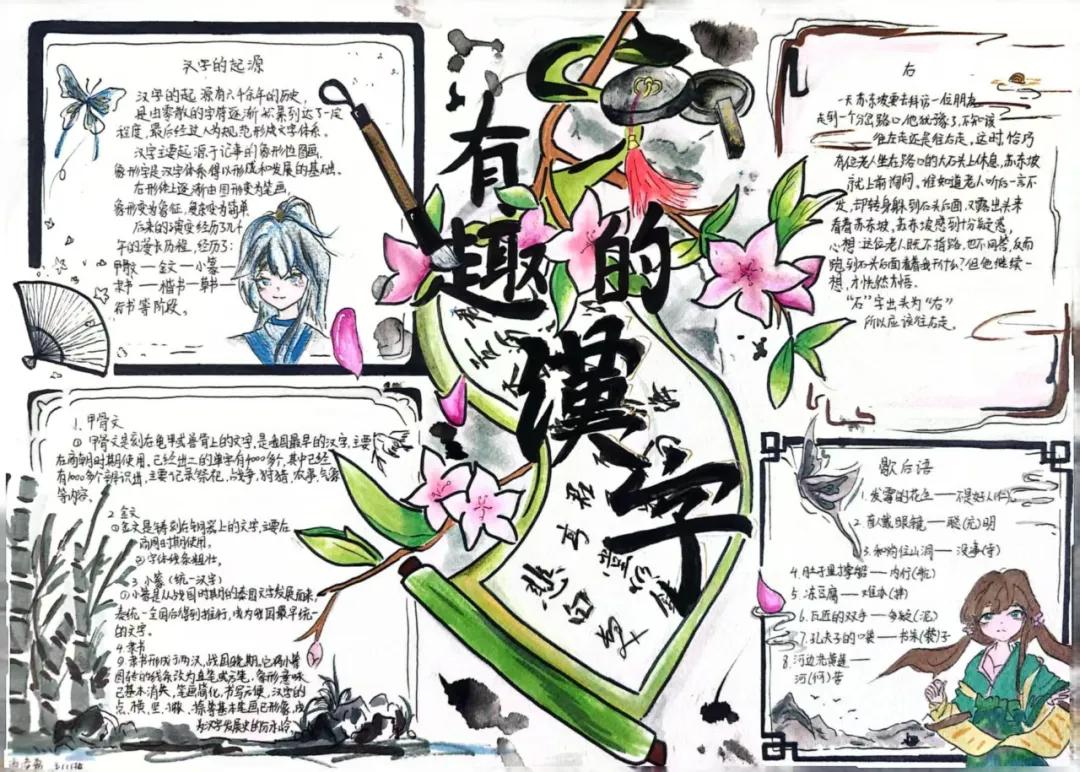 有趣的漢字
汉字的起源
汉字的起源有六千余年的历史,
是由零散的字符逐渐积累到达了一定
程度,最后经过人为规范形成文字体系。
汉字主要起源于记事的象形性图画,
象形字是汉字体系得以形成和发展的基础。
在形体上逐渐由图形变为笔画,
象形变为象征,复杂变为简单
后来的演变经历了几千
年的漫长历程,经历3:
甲骨文—金文—小篆—
隶书—楷书—草书—
行书等阶段。
右
一天苏东坡要去拜访一位朋友
走到一个分岔路口,他犹豫了,不知该
往左走还是往右走,这时,恰巧
有位老人坐在路口的大石头上休息,苏东坡
就上前询问。谁知道老人听后一言不
发,却转身躲到石头后面,又露出头来
看着苏东坡,苏东坡感到十分疑惑,
心想:这位老人既不指路,也不回答,反而
跑到石头后面看着我干什么?但他继续一
想,才恍然大悟。
“石”字出头为“右”
所以应该往右走。
1. 甲骨文
① 甲骨文是刻在龟甲或兽骨上的文字,是我国最早的汉字,主要
在商朝时期使用。已经出土的单字有4000多个,其中已经
有1000多个辨识出,主要记录祭祀,战争,狩猎,农事,气象
等内容。
2. 金文
①金文是铸刻在铜器上的文字,主要在
商周时期使用。
②字体线条粗壮。
3. 小篆(统一汉字)
①小篆是从战国时期的秦国文字发展而来,
秦统一全国后得到推行,成为我国最早统一
的文字。
4. 隶书
①隶书形成于两汉,战国晚期,它将小篆
圆转的线条改为直笔或方笔,象形意味
已基本消失,笔画简化,书写方便,汉字的
点、横、竖、撇、捺等基本笔画已形象,成
为汉字发展史的分水岭
歇后语
1. 发霉的花生——不是好人(仁)。
2. 盲人戴眼镜——聪(充)明
3. 和尚住山洞——没事(寺)
4. 肚子里撑船——内行(航)
5. 冻豆腐——难办(拌)
6. 瓦匠的双手——多疑(泥)
7. 孔夫子的口袋——书呆(袋)子
8. 河边洗黄莲——
河(何)苦